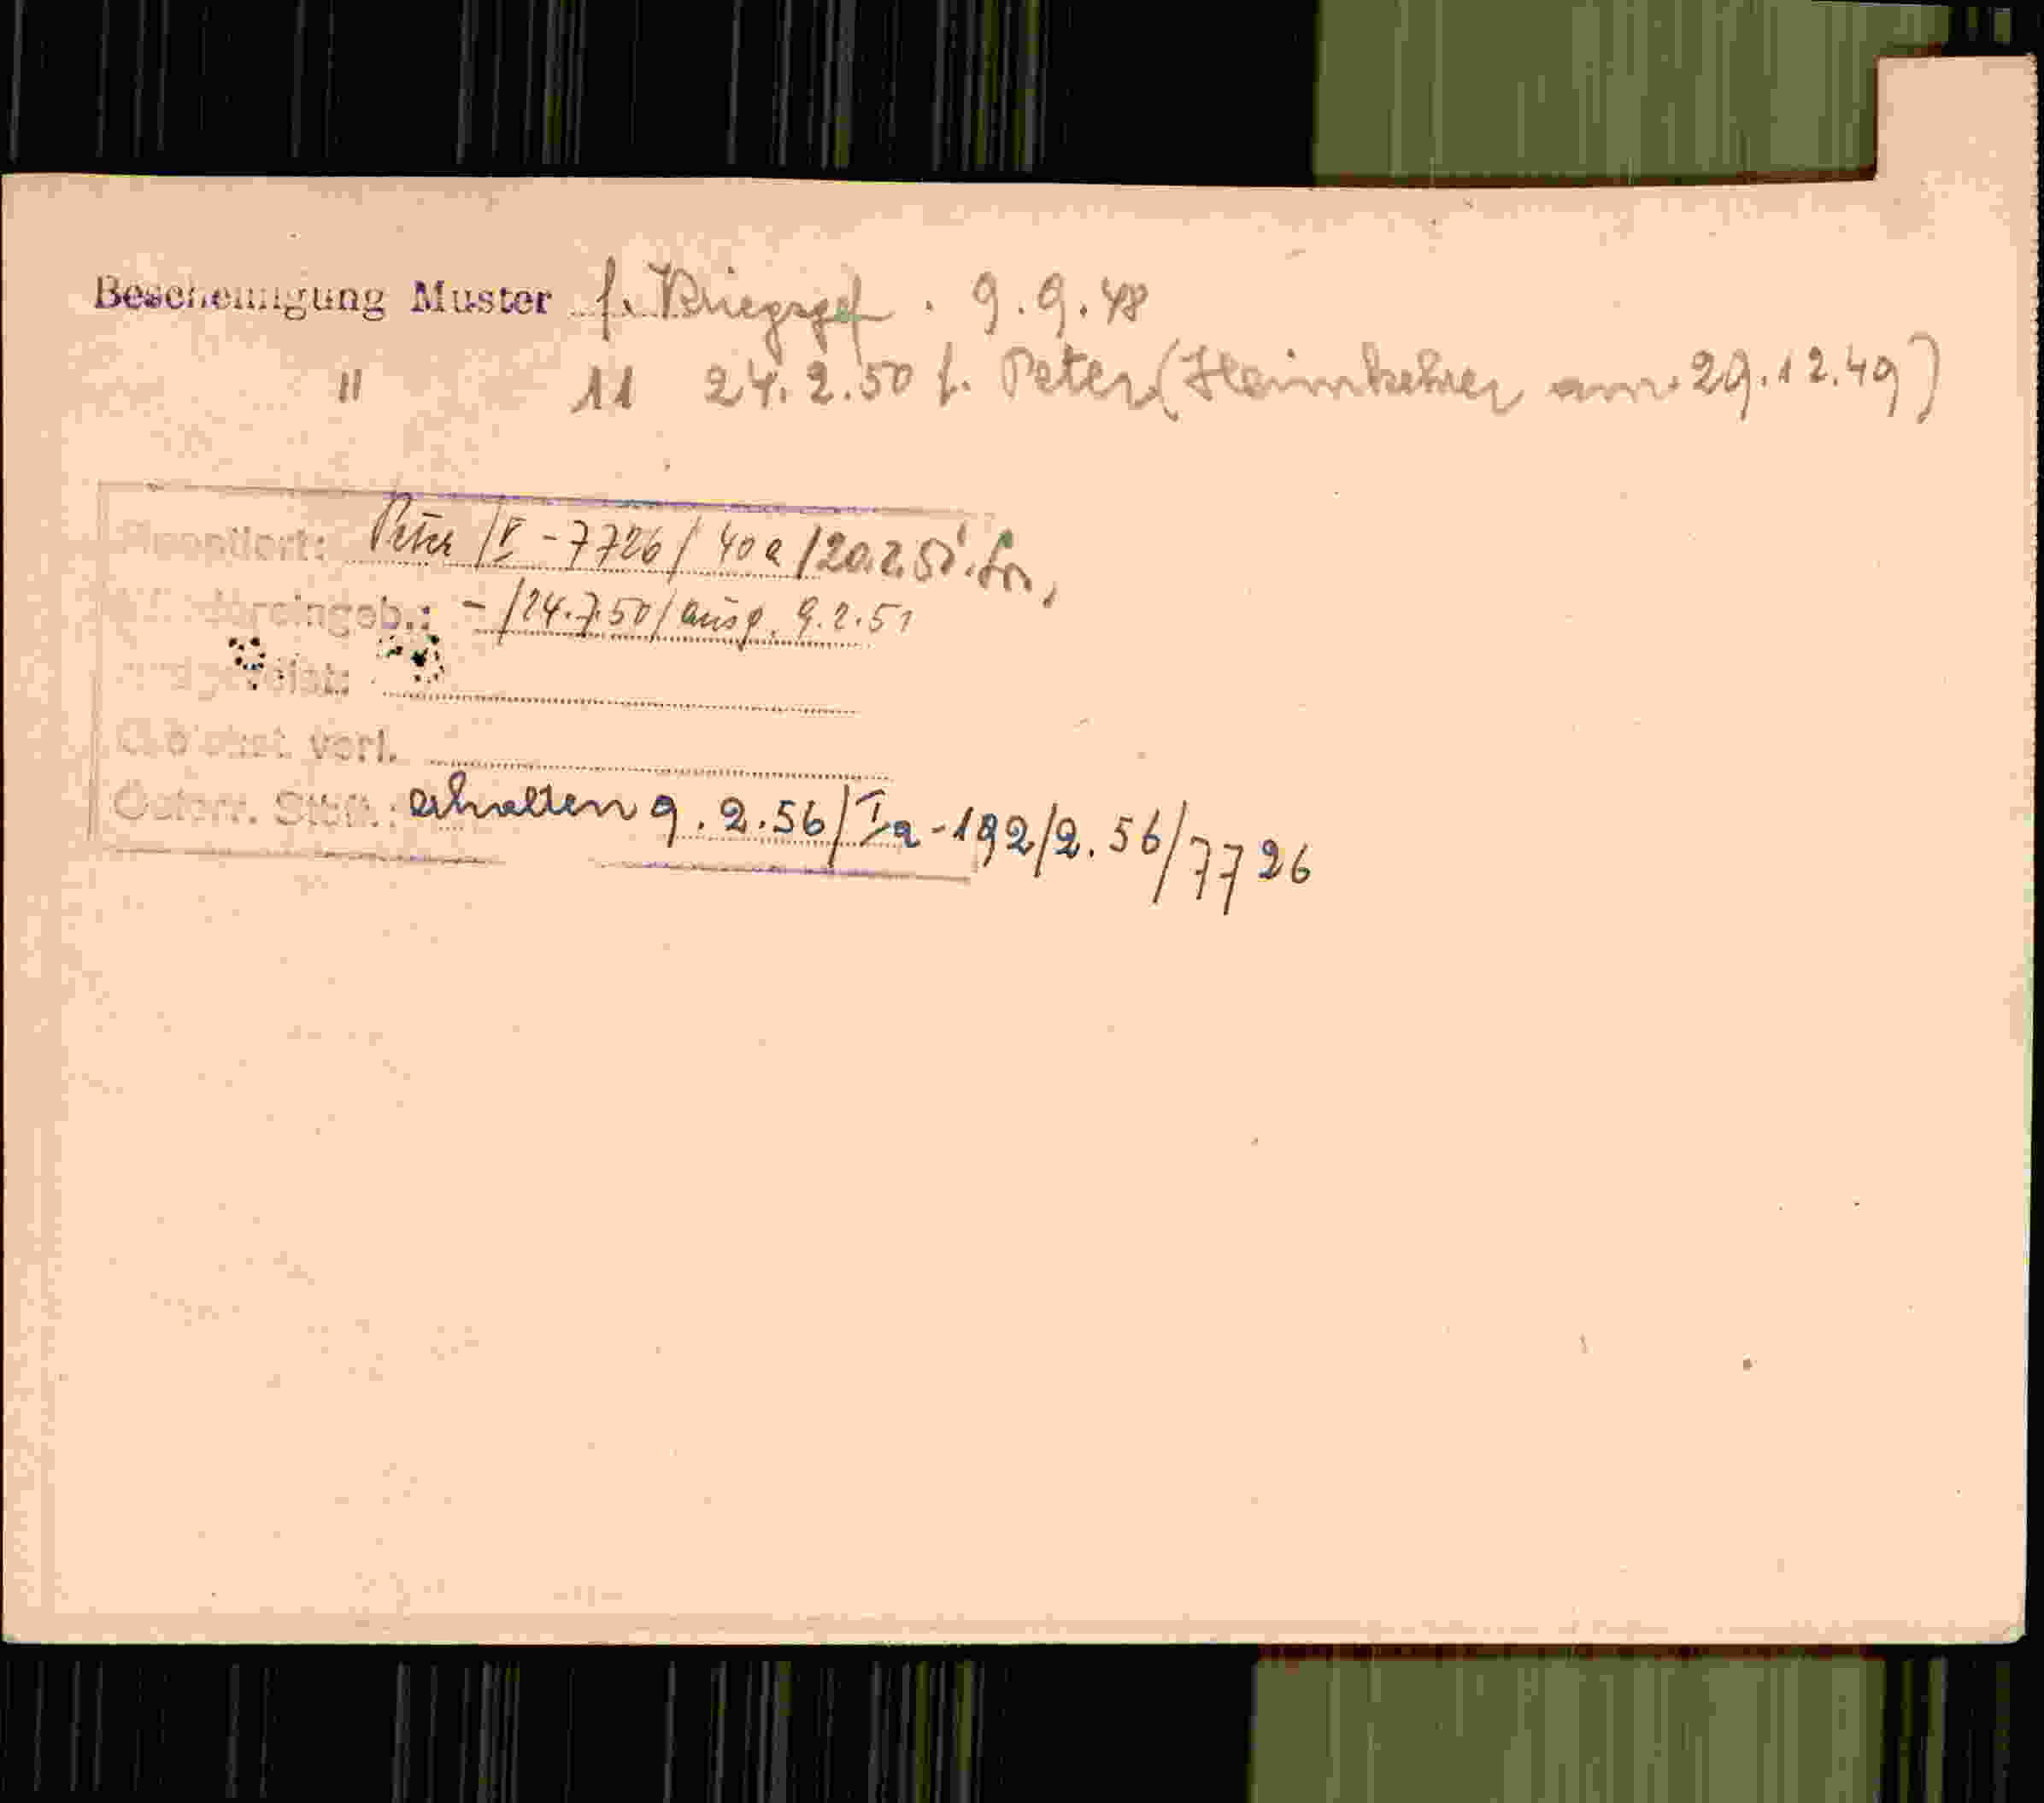 Bescheinigung Muster f. Kriegsgef. 9.9.48
" 11 24.2.50 f. Peter (Heimkehrer am 29.12.49)
Peter / V - 7726 / 40a / 20.2.51.
- / 24.7.50 / ausg. 9.2.51
verl.
Österr. Stbft.: erhalten 9.2.56 / Ia - 192 / 2.56 / 7726